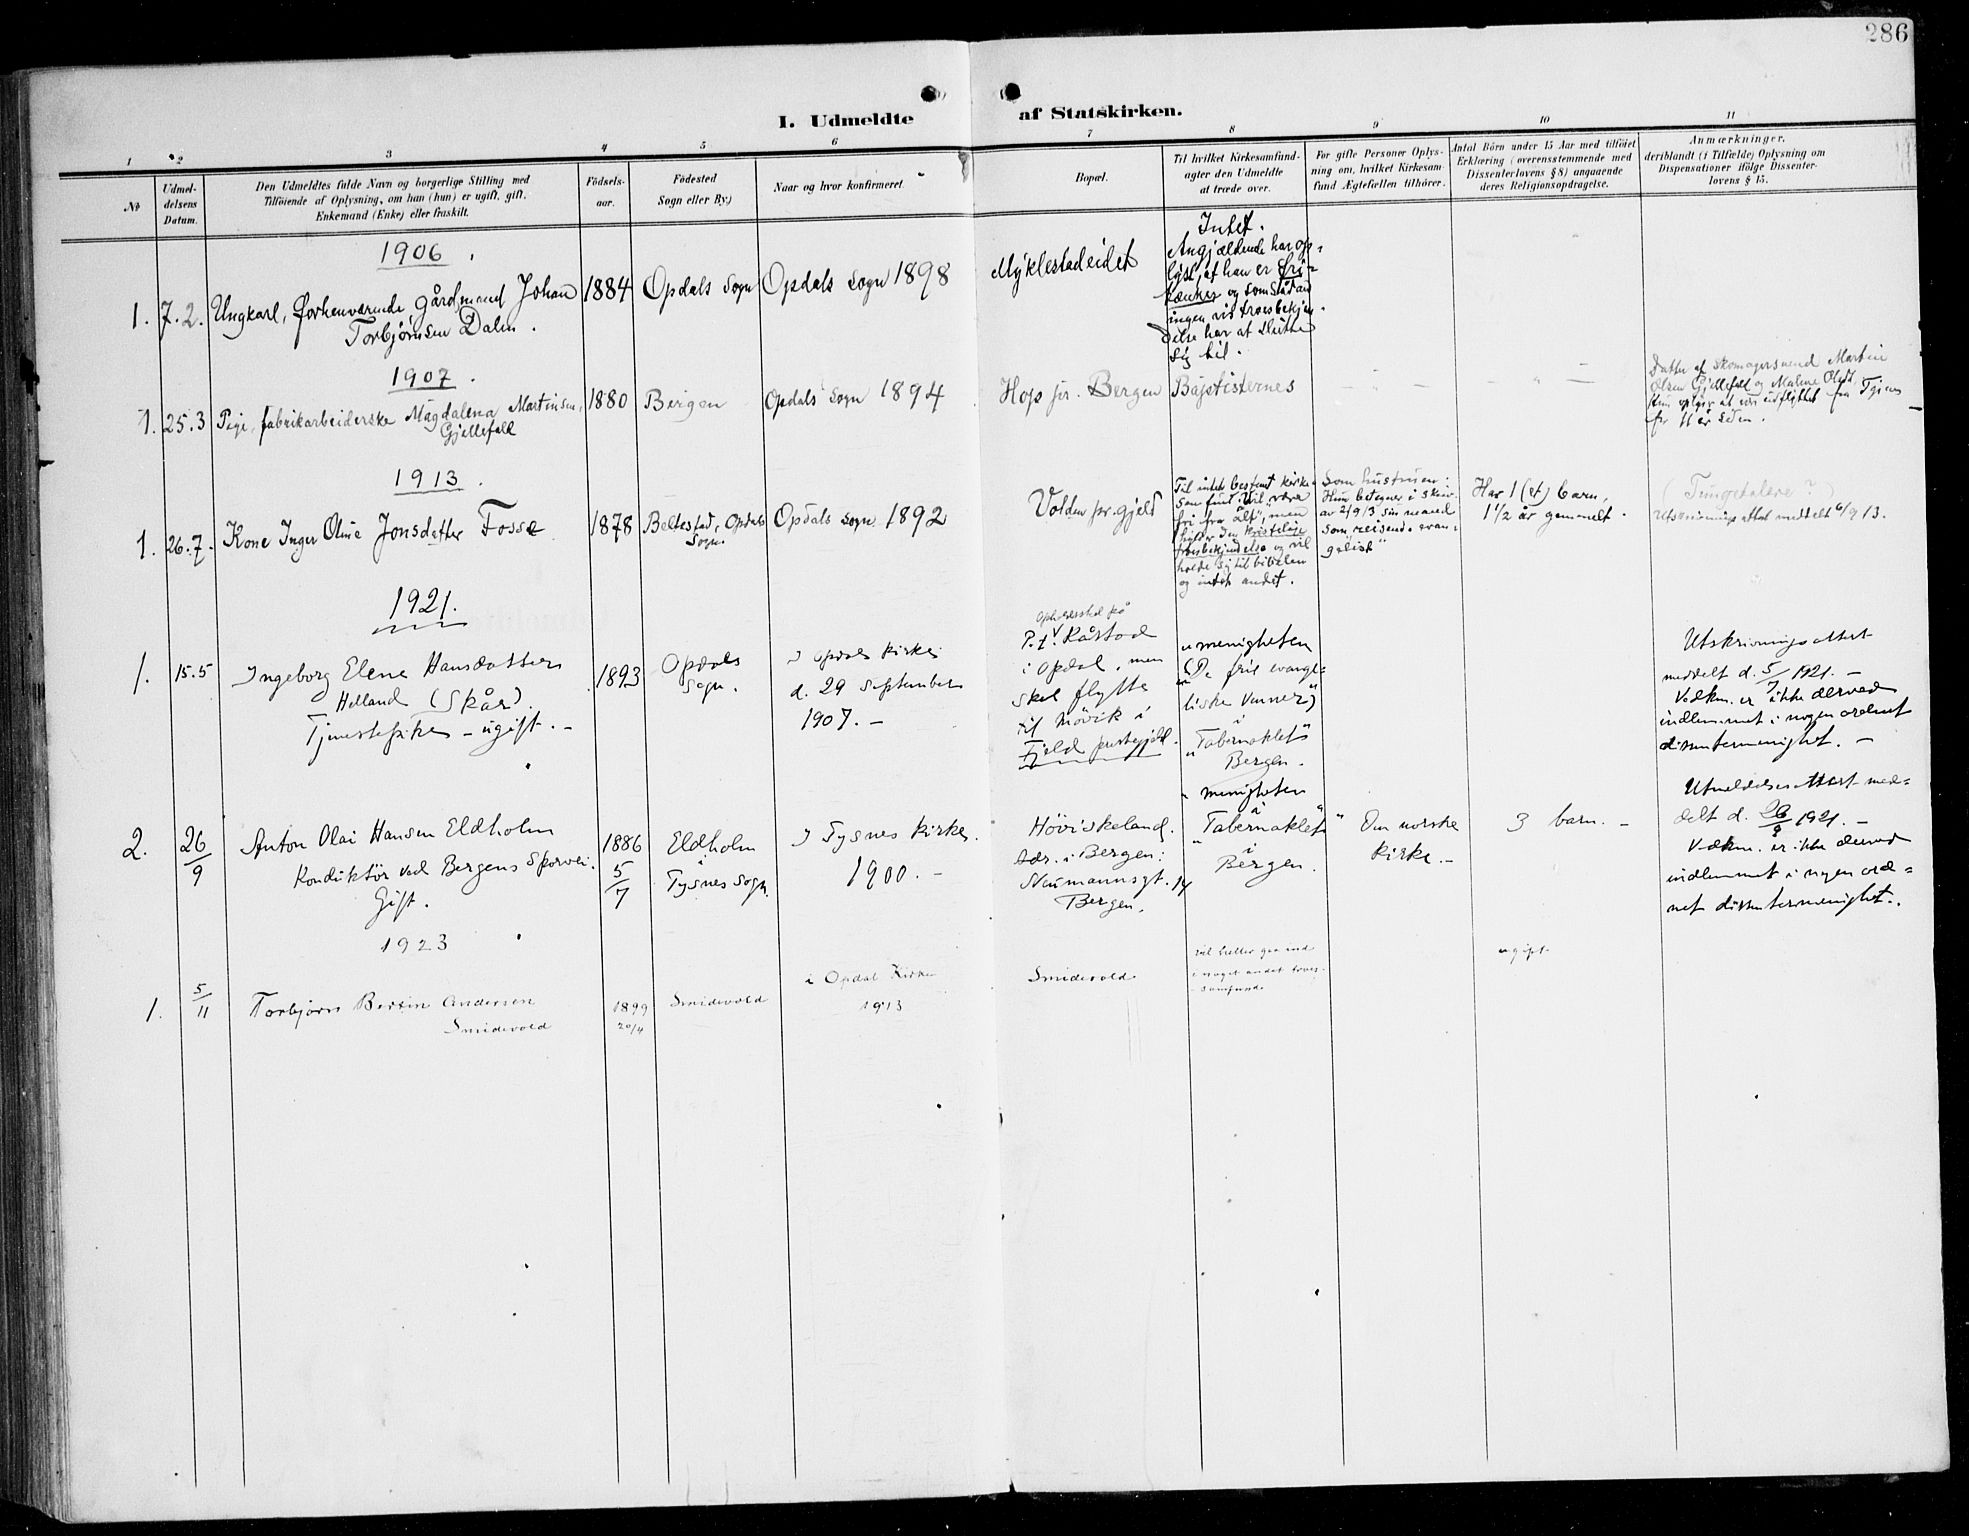 286
I. Udmeldte af Statskirken.
1 2 3 4 5 6 7 8 9 10 11
No
Udmel-
delsens
Datum.
Den Udmeldtes fulde Navn og borgerlige Stilling med
Tilføiende af Oplysning, om han (hun) er ugift, gift,
Enkemand (Enke) eller fraskilt.
Födsels-
aar.
Födested
Sogn eller By.)
Naar og hvor konfirmeret
Bopæl.
Til hvilket Kirkesamfund
agter den Udmeldte
at træde over.
For gifte Personer Oplys-
ning om, hvilket Kirkesam-
fund Ægtefællen tilhörer.
Antal Börn under 15 Aar med tilföiet
Erklæring (overensstemmende med
Dissenterlovens § 8) angaaende
deres Religionsopdragelse.
Anmærkninger,
deriblandt (i Tilfælde) Oplysning om
Dispensationer ifölge Dissenter-
lovens § 15.
1906.
1. 7.2.
Ungkarl, forhenværende gårdmand Johan
Torbjörnsen Dalen.
1884
Opdals sogn
Opdals sogn 1898
Myklestadeidet
Intet.
Angjældende har op-
lyst, at han er fri-
tænker og som sådan
ingen vis troesbekjen-
delse har at slutte
sig til.
1907.
1. 25.3
Pige, fabrikarbeiderske Magdalena Martinsen
Gjellefall
1880
Bergen
Opdals sogn 1894
Hop pr. Bergen
Baptisternes
- " -
- " -
Datter af skomagersvend Martin
Olsen Gjellefall og Malene Olsdt.
Hun opgiv at være udflyttet fra Tysnes
for 11 år siden.
1913.
1. 26.7.
Kone Inger Oline Jonsdatter Fosse
1878
Beltestad, Opdals
sogn.
Opdals sogn 1892
Volden pr.gjeld
Til intet bestemt kirke-
samfund. Vil "være
fri fra alt", men
holder den kristelige
troesbekjendelse og vil
holde sig til bibelen
og intet andet.
Som hustruen.
Hun betegner i skriv.
av 2/9 13 sin mand
som "reisende evan-
gelist"
Har 1 (et) barn,
1 1/2 år gammelt.
(Tungetalere?)
Utskrivnings attest meddelt 6/9 13.
1921.
1. 15.5
Ingeborg Elene Hansdatter
Helland (Skår).
Tjenestepike - ugift. -
1893
Opdals
sogn.
I Opdals kirke
d. 29 september
1907. -
opholdssted på
P.t. Råstad
i Opdal, men
skal flytte
til Hövik i
Fjeld prestegjeld.
"menigheten
("De frie evange-
liske venner")
i
"Tabernaklet"
Bergen.
Utskrivningsattest
meddelt d. 5/7 1921. -
Vedkm. er ikke derved
indlemmet i nogen ordnet
dissentermenighet. -
2. 26/9
Anton Olai Hansen Eldholm
Konduktör ved Bergens Sporvei.
Gift.
1886
5/7
Eldholm
i
Tysnes sogn.
I Tysnes kirke.
1900. -
Höviskeland.
Adr. i Bergen:
Neumannsgt. 14
Bergen.
"menigheten
i
"Tabernaklet"
i
Bergen.
Den norske
kirke. -
3 barn. -
Utmeldelsesattest med-
delt d. 26/9 1921. -
Vedkm. er ikke derved
indlemmet i nogen ord-
net dissentermenighet. -
1923
1. 5/11
Torbjörn Bertin Andersen
Smidevold
1899
20/4
Smidevold
i Opdal Kirke
1913
Smidevold
vil heller gaa ind
i noget andet troes-
samfund
ugift